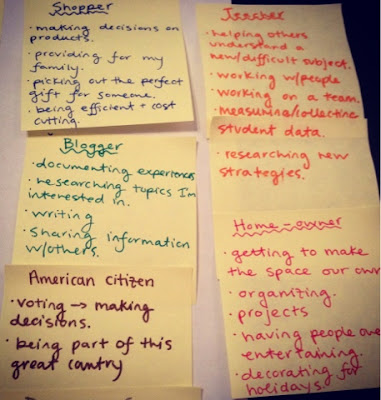 Shopper
· making decisions on
products.
· providing for my
family.
· picking out the perfect
gift for someone.
· being efficient + cost
cutting.
Blogger
· documenting experiences
· researching topics I'm
interested in.
· writing
· sharing information
w/others.
American citizen
· voting → making
decisions.
· being part of this
great country
Teacher
· helping others
understand a
new/difficult subject.
· working w/people
· working on a team.
· measuring/collecting
student data.
· researching new
strategies.
Home-owner
· getting to make
the space our own
· organizing.
· projects
· having people over
entertaining.
· decorating for
holidays.